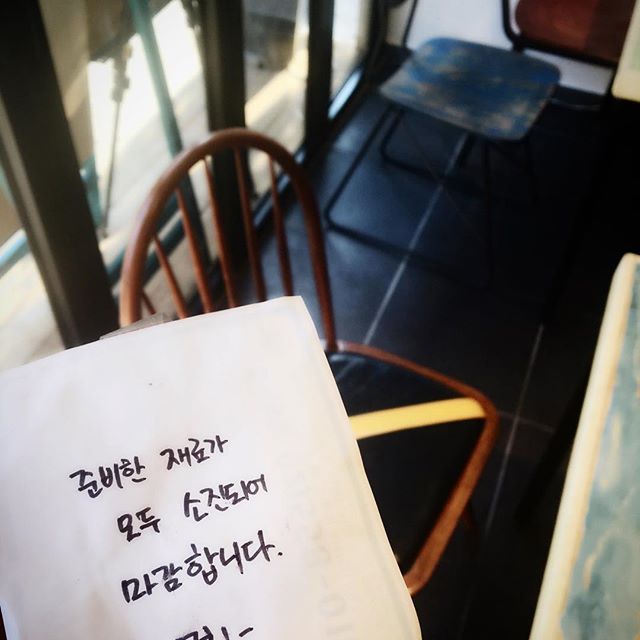 준비한 재료가
모두 소진되어
마감합니다.